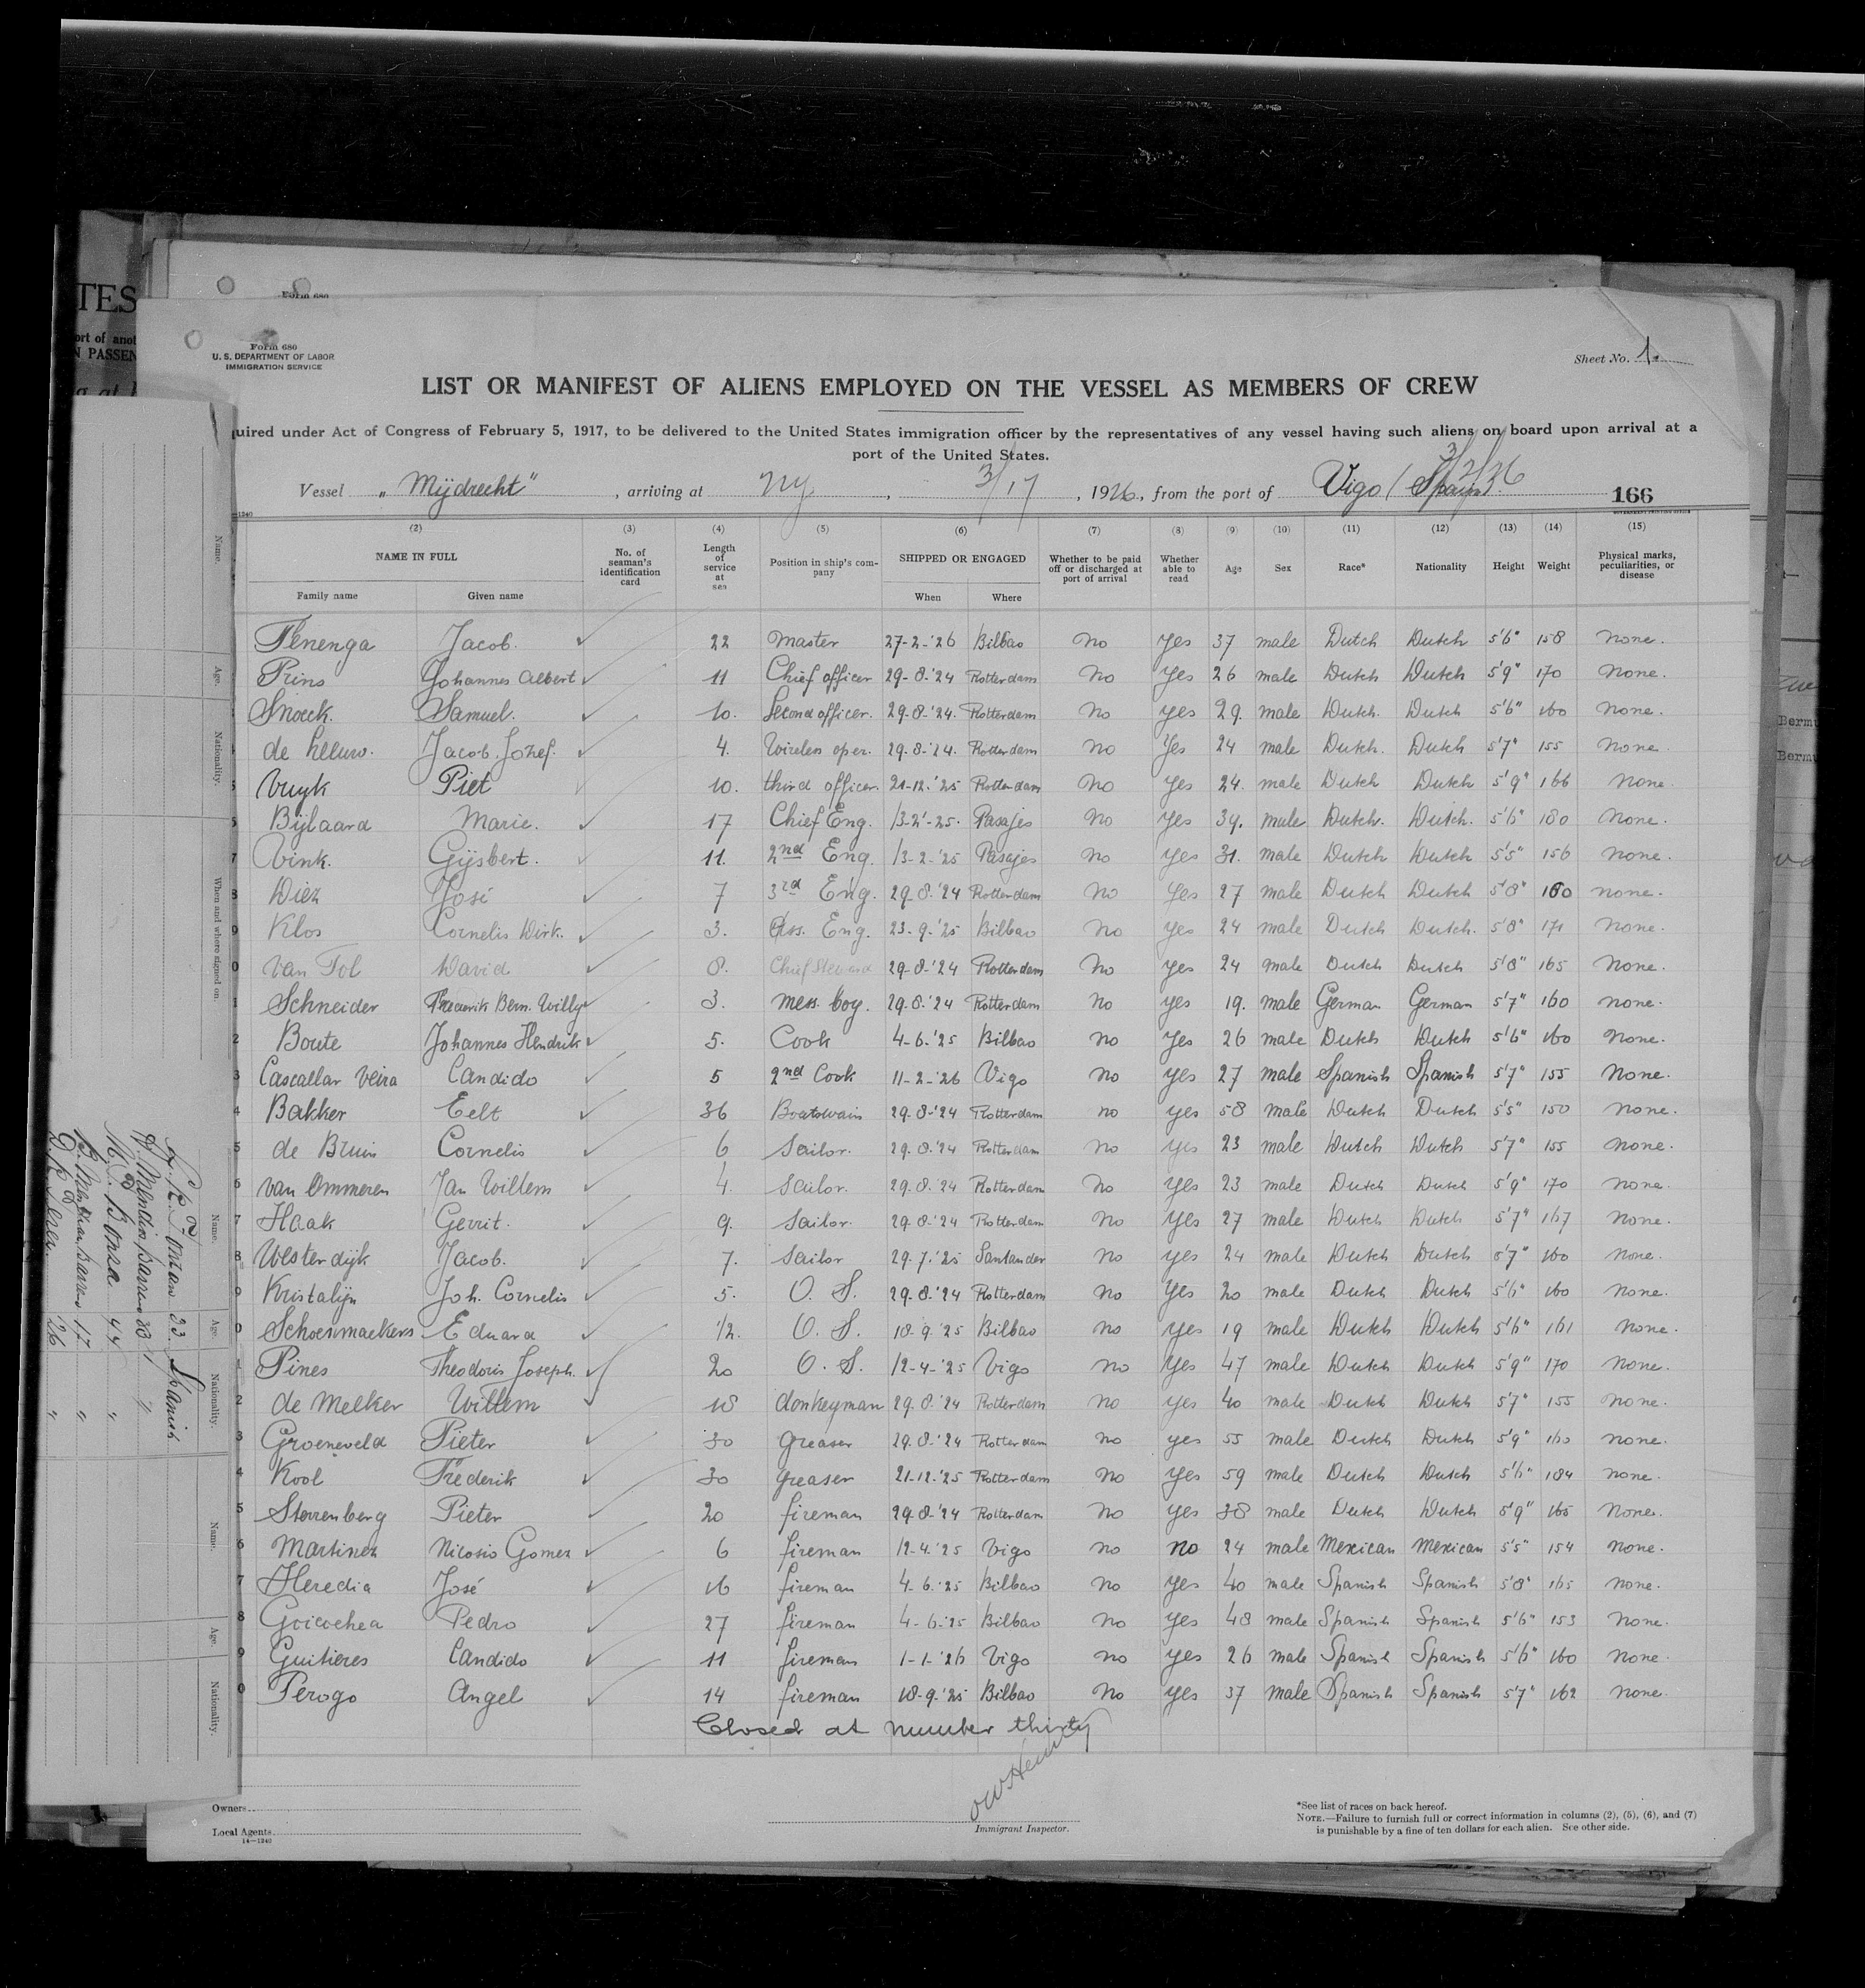 TES
ort of anot
N PASSEN
Form 680
Form 680
U. S. DEPARTMENT OF LABOR
IMMIGRATION SERVICE
Sheet No. 1.
LIST OR MANIFEST OF ALIENS EMPLOYED ON THE VESSEL AS MEMBERS OF CREW
quired under Act of Congress of February 5, 1917, to be delivered to the United States immigration officer by the representatives of any vessel having such aliens on board upon arrival at a
port of the United States.
Vessel „Mijdrecht" , arriving at NY , 3/17 , 1926, from the port of Vigo (Spain) 3/2/26
166
(2) (3) (4) (5) (6) (7) (8) (9) (10) (11) (12) (13) (14) (15)
NAME IN FULL No. of seaman's identification card Length of service at sea Position in ship's company SHIPPED OR ENGAGED Whether to be paid off or discharged at port of arrival Whether able to read Age Sex Race* Nationality Height Weight Physical marks, peculiarities, or disease
Family name Given name When Where
Tenenga Jacob. 22 Master 27-2-'26 Bilbao No Yes 37 male Dutch Dutch 5'6" 158 None.
Prins Johannes Albert 11 Chief officer 29-8-'24 Rotterdam No Yes 26 male Dutch Dutch 5'9" 170 None.
Snoeck. Samuel. 10. Second officer. 29-8-'24. Rotterdam No yes 29. male Dutch. Dutch 5'6" 160 None.
de Leeuw. Jacob. Jozef. 4. Wireless oper. 29-8-'24. Rotterdam No Yes 24 male Dutch. Dutch 5'7" 155 None.
5 Vuyk Piet 10. third officer. 21-12.'25 Rotterdam No Yes 24. male Dutch Dutch 5'9" 166 None.
6 Bijlaard Marie. 17 Chief Eng. 13-2'-25. Pasajes No Yes 39. male Dutch. Dutch. 5'6" 180 None.
7 Vink. Gijsbert. 11. 2nd Eng. 13-2-'25 Pasajes No yes 31. male Dutch Dutch 5'5" 156 None.
8 Diez José 7 3rd Eng. 29-8-'24 Rotterdam No Yes 27 male Dutch Dutch 5'8" 160 none.
9 Klos Cornelis Dirk. 3. Ass. Eng. 23-9-'25 Bilbao No Yes 24 male Dutch Dutch. 5'8" 171 None.
0 Van Tol David 8. Chief Steward 29-8-'24 Rotterdam No yes 24 male Dutch Dutch 5'8" 165 None.
1 Schneider Frederik Bern. Willy 3. mess. boy. 29-8.'24 Rotterdam No yes 19. male German German 5'7" 160 none.
2 Boute Johannes Hendrik 5. Cook 4-6.'25 Bilbao No Yes 26 male Dutch Dutch 5'6" 160 None.
3 Cascallar Veira Candido 5 2nd Cook 11-2-'26 Vigo No yes 27 male Spanish Spanish 5'7" 155 None.
4 Bakker Eelt 36 Boatswain 29-8-'24 Rotterdam no yes 58 male Dutch Dutch 5'5" 150 none.
5 de Bruin Cornelis 6 Sailor. 29-8.'24 Rotterdam No yes 23 male Dutch Dutch 5'7" 155 None.
6 van Ommeren Jan Willem 4. Sailor. 29.8.'24 Rotterdam No Yes 23 male Dutch Dutch 5'9" 170 none.
7 Haak Gerrit. 9. Sailor. 29-8-'24 Rotterdam No Yes 27 male Dutch Dutch 5'7" 167 None.
8 Westerdijk Jacob. 7. Sailor 29.7.'25 Santander No yes 24 male Dutch Dutch 5'7" 160 None.
9 Kristalijn Joh. Cornelis 5. O. S. 29-8.'24 Rotterdam No Yes 20 male Dutch Dutch 5'6" 160 None.
0 Schoenmaekers Eduard 1/2. O. S. 18-9.'25 Bilbao No yes 19 male Dutch Dutch 5'6" 161 None.
1 Pines Theodoris Joseph. 20 O. S. 12-4-'25 Vigo No Yes 47 male Dutch Dutch 5'9" 170 None.
2 de Melker Willem 18 donkeyman 29.8.'24 Rotterdam No yes 40 male Dutch Dutch 5'7" 155 none.
3 Groeneveld Pieter 30 greaser 29.8-'24 Rotterdam No yes 55 male Dutch Dutch 5'9" 160 none.
4 Kool Frederik 30 greaser 21-12-'25 Rotterdam No Yes 59 male Dutch Dutch 5'6" 184 none.
5 Sterrenberg Pieter 20 fireman 29-8-'24 Rotterdam No yes 38 male Dutch Dutch 5'9" 165 None.
6 Martinez Nicosio Gomez 6 fireman 12-4.'25 Vigo no no 24 male Mexican Mexican 5'5" 154 none.
7 Heredia José 16 fireman 4-6.'25 Bilbao No yes 40 male Spanish Spanish 5'8" 165 none.
8 Goicochea Pedro 27 fireman 4-6-'25 Bilbao No yes 48 male Spanish Spanish 5'6" 153 None.
9 Guitieres Candido 11 fireman 1-1-'26 Vigo no yes 26 male Spanish Spanish 5'6" 160 none.
0 Perogo Angel 14 fireman 18-9-'25 Bilbao No yes 37 male Spanish Spanish 5'7" 162 none.
Closed at number thirty
Owners
Local Agents
14—1240
Immigrant Inspector.
*See list of races on back hereof.
NOTE.—Failure to furnish full or correct information in columns (2), (5), (6), and (7)
is punishable by a fine of ten dollars for each alien. See other side.
Name.
Age.
Nationality.
When and where signed on.
Name.
Age.
Nationality.
Name.
Age.
Nationality.
23 Spanish
33 "
44 "
17 "
26 "
Bermu
Bermu